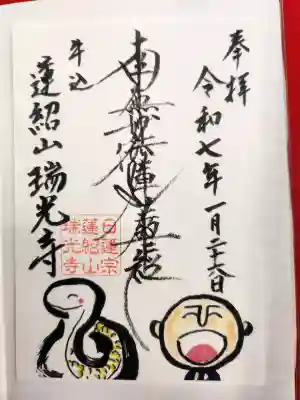 奉拝
令和七年一月二十六日
南無妙法蓮華経
牛込
蓮紹山瑞光寺
日蓮宗
蓮紹山
瑞光寺